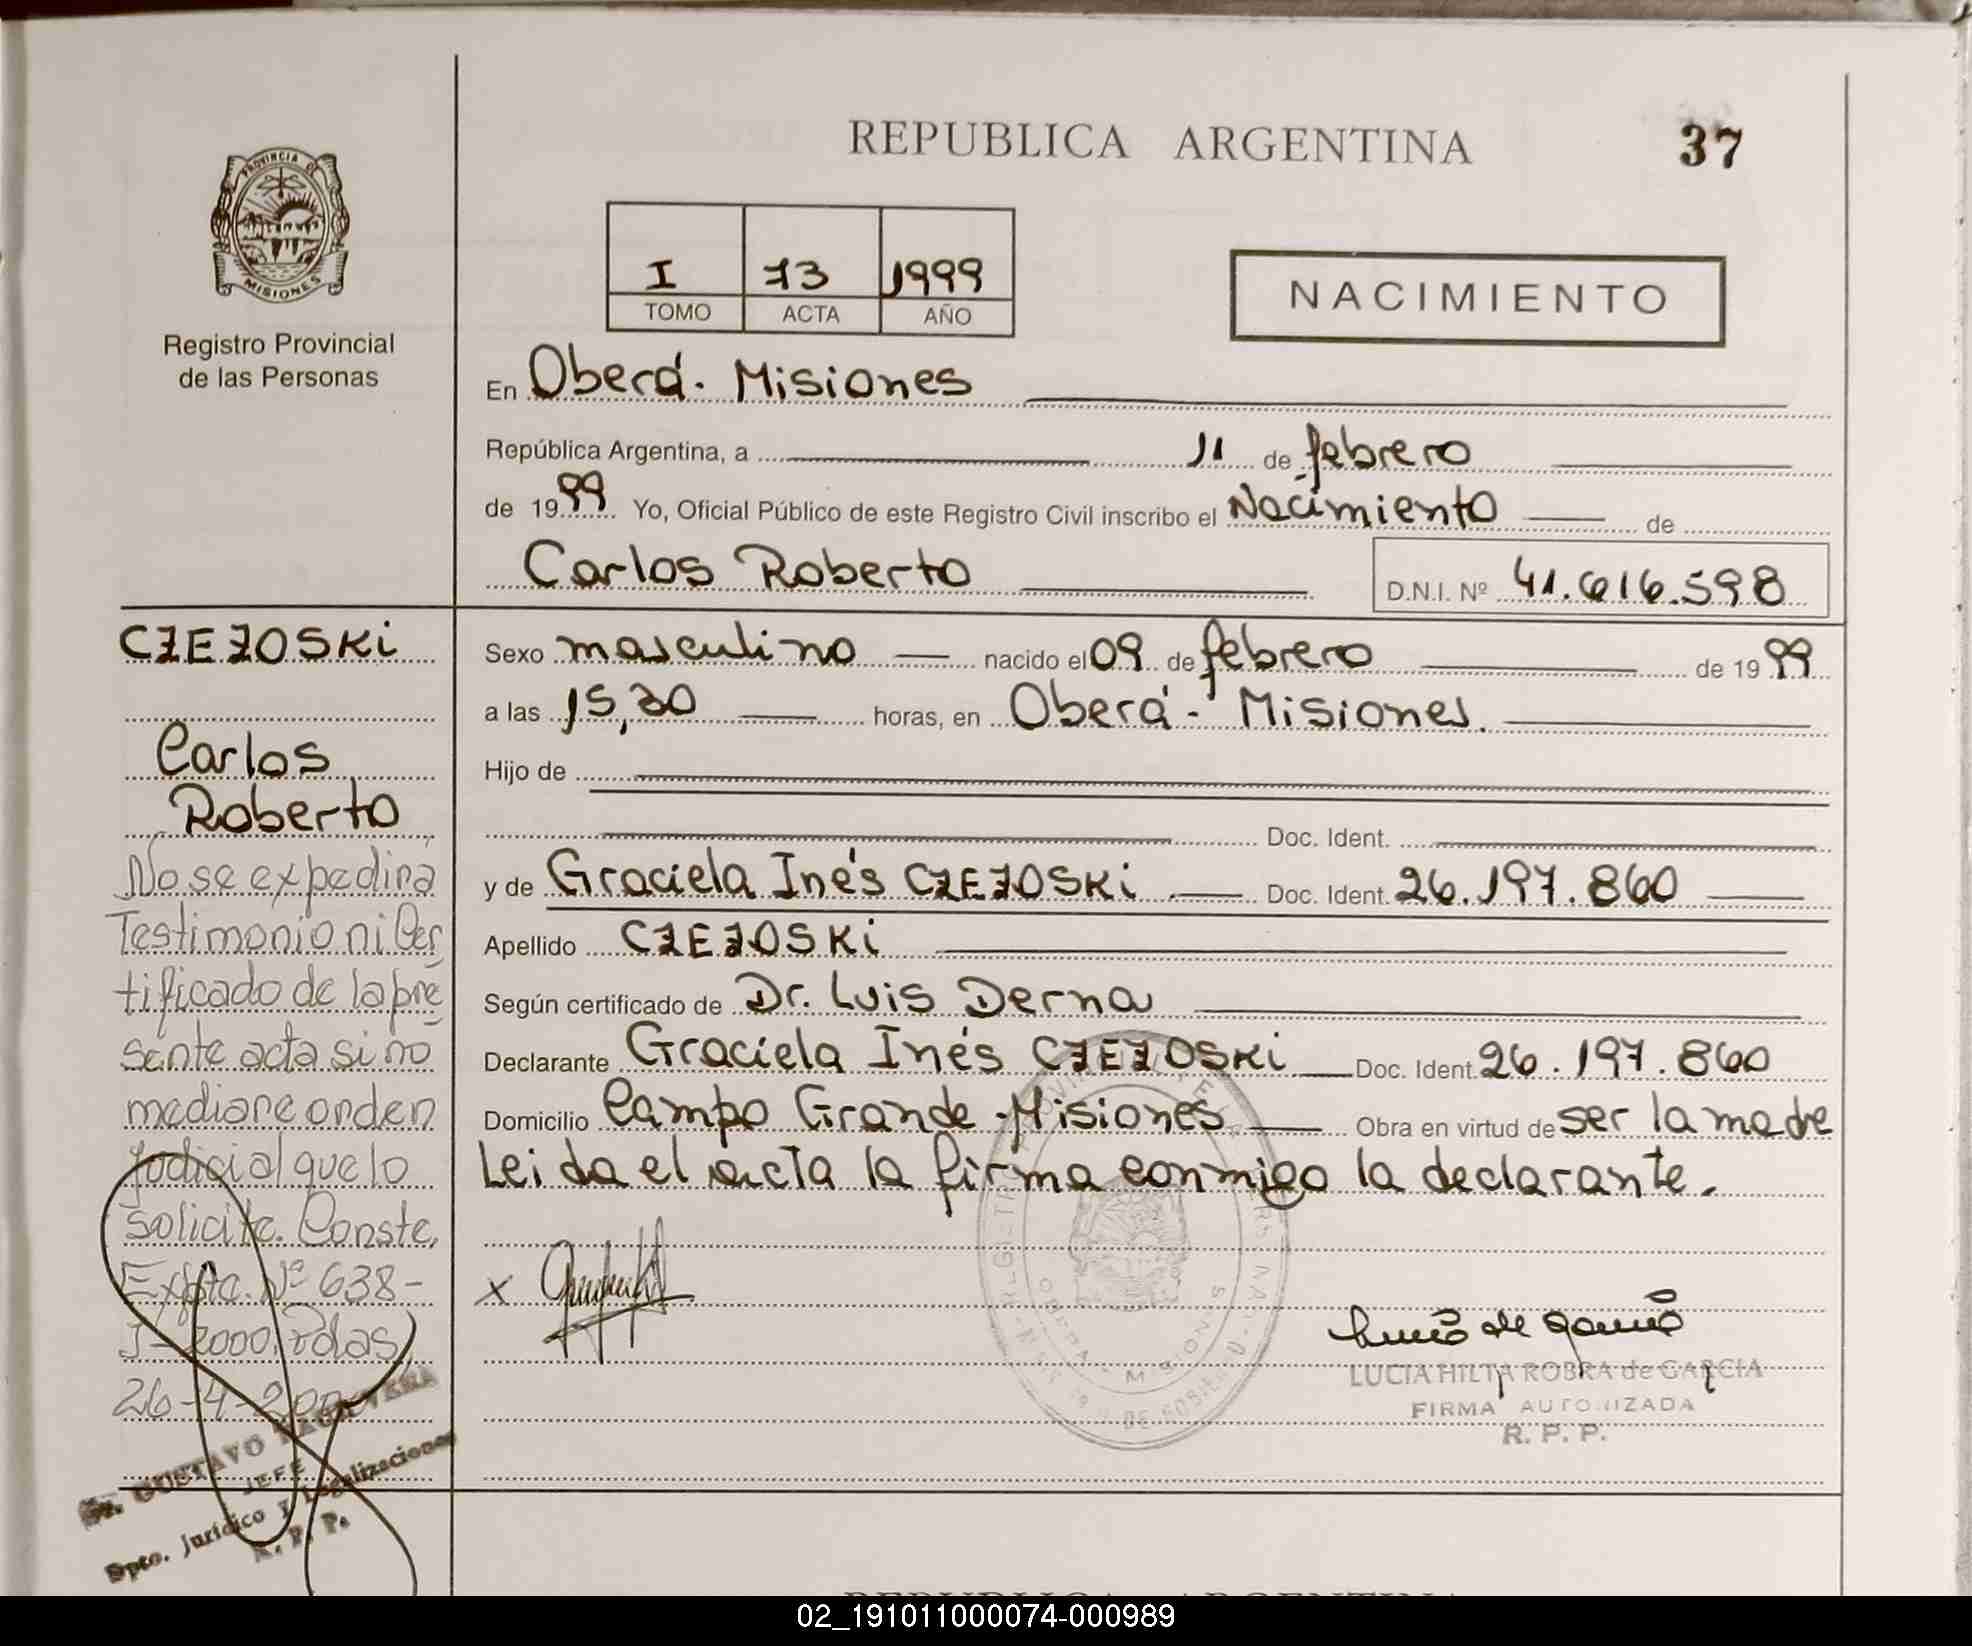 REPUBLICA ARGENTINA
37
PROVINCIA DE
MISIONES
Registro Provincial
de las Personas
I 73 1999
TOMO ACTA AÑO
NACIMIENTO
En Oberá. Misiones
República Argentina, a 11 de febrero
de 1999 Yo, Oficial Público de este Registro Civil inscribo el Nacimiento de
Carlos Roberto D.N.I. Nº 41.616.598
CZEZOSKi
Carlos
Roberto
No se expedirá
Testimonio ni Cer
tificado de la pre
sente acta si no
mediare orden
judicial que lo
solicite. Conste,
Expte. Nº 638-
I-2000. Pdas,
26-4-200
GUSTAVO
JEFE
Dpto. Jurídico y Legalizaciones
R. P. P.
Sexo masculino nacido el 09 de febrero de 1999
a las 15,30 horas, en Oberá - Misiones.
Hijo de
Doc. Ident.
y de Graciela Inés CZEZOSKi Doc. Ident. 26.197.860
Apellido CZEZOSKi
Según certificado de Dr. Luis Derna
Declarante Graciela Inés CZEZOSKi Doc. Ident. 26.197.860
Domicilio Campo Grande - Misiones Obra en virtud de ser la madre
Leida el acta la firma conmigo la declarante.
x
OBERA - MISIONES
LUCIA HILTA ROBRA de GARCIA
FIRMA AUTORIZADA
R. P. P.
REPUBLICA ARGENTINA
02_191011000074-000989